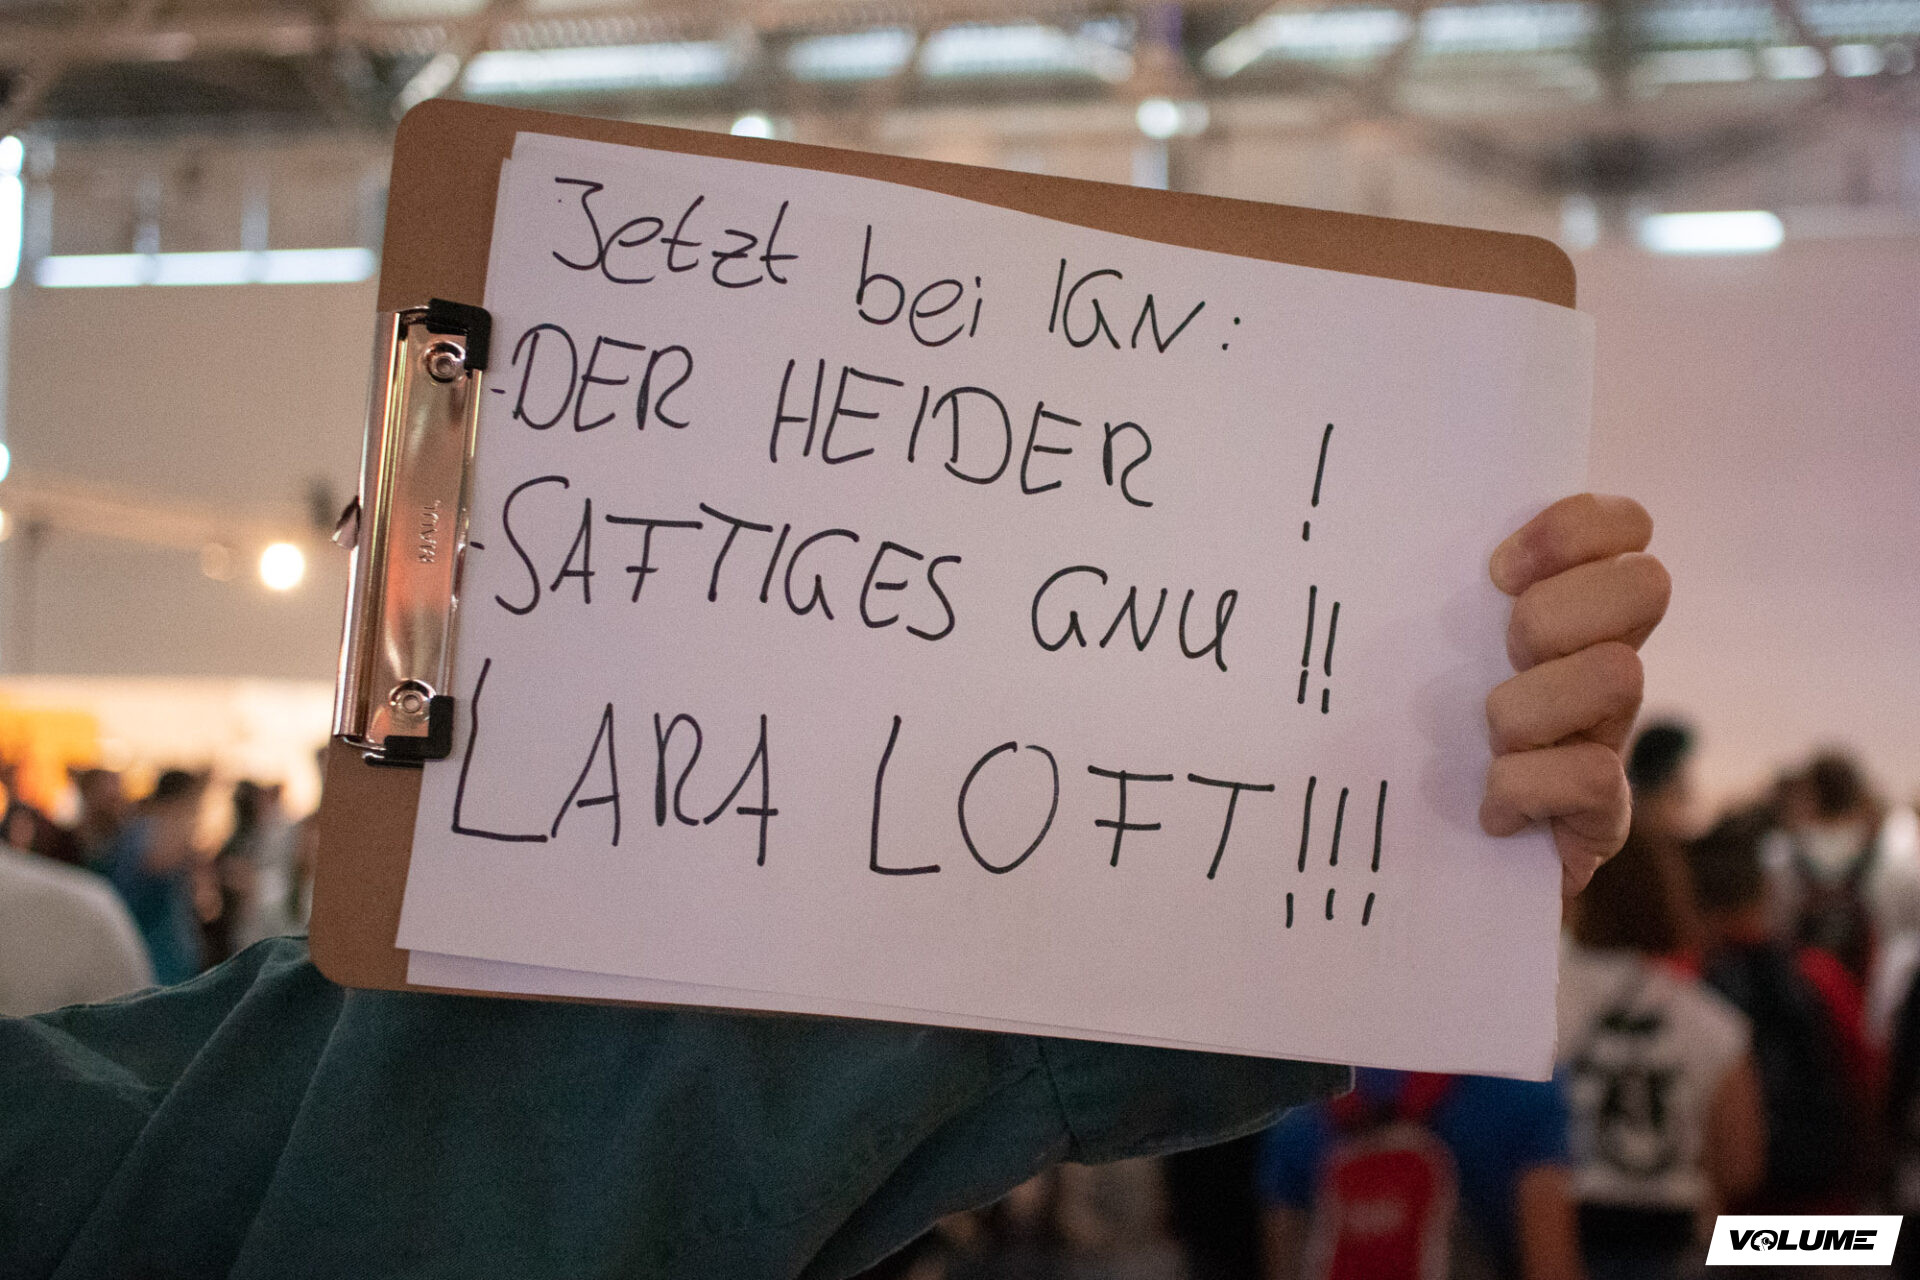 Jetzt bei IGN:
-DER HEIDER !
-SAFTIGES GNU !!
LARA LOFT!!!
MAUL
VOLUME